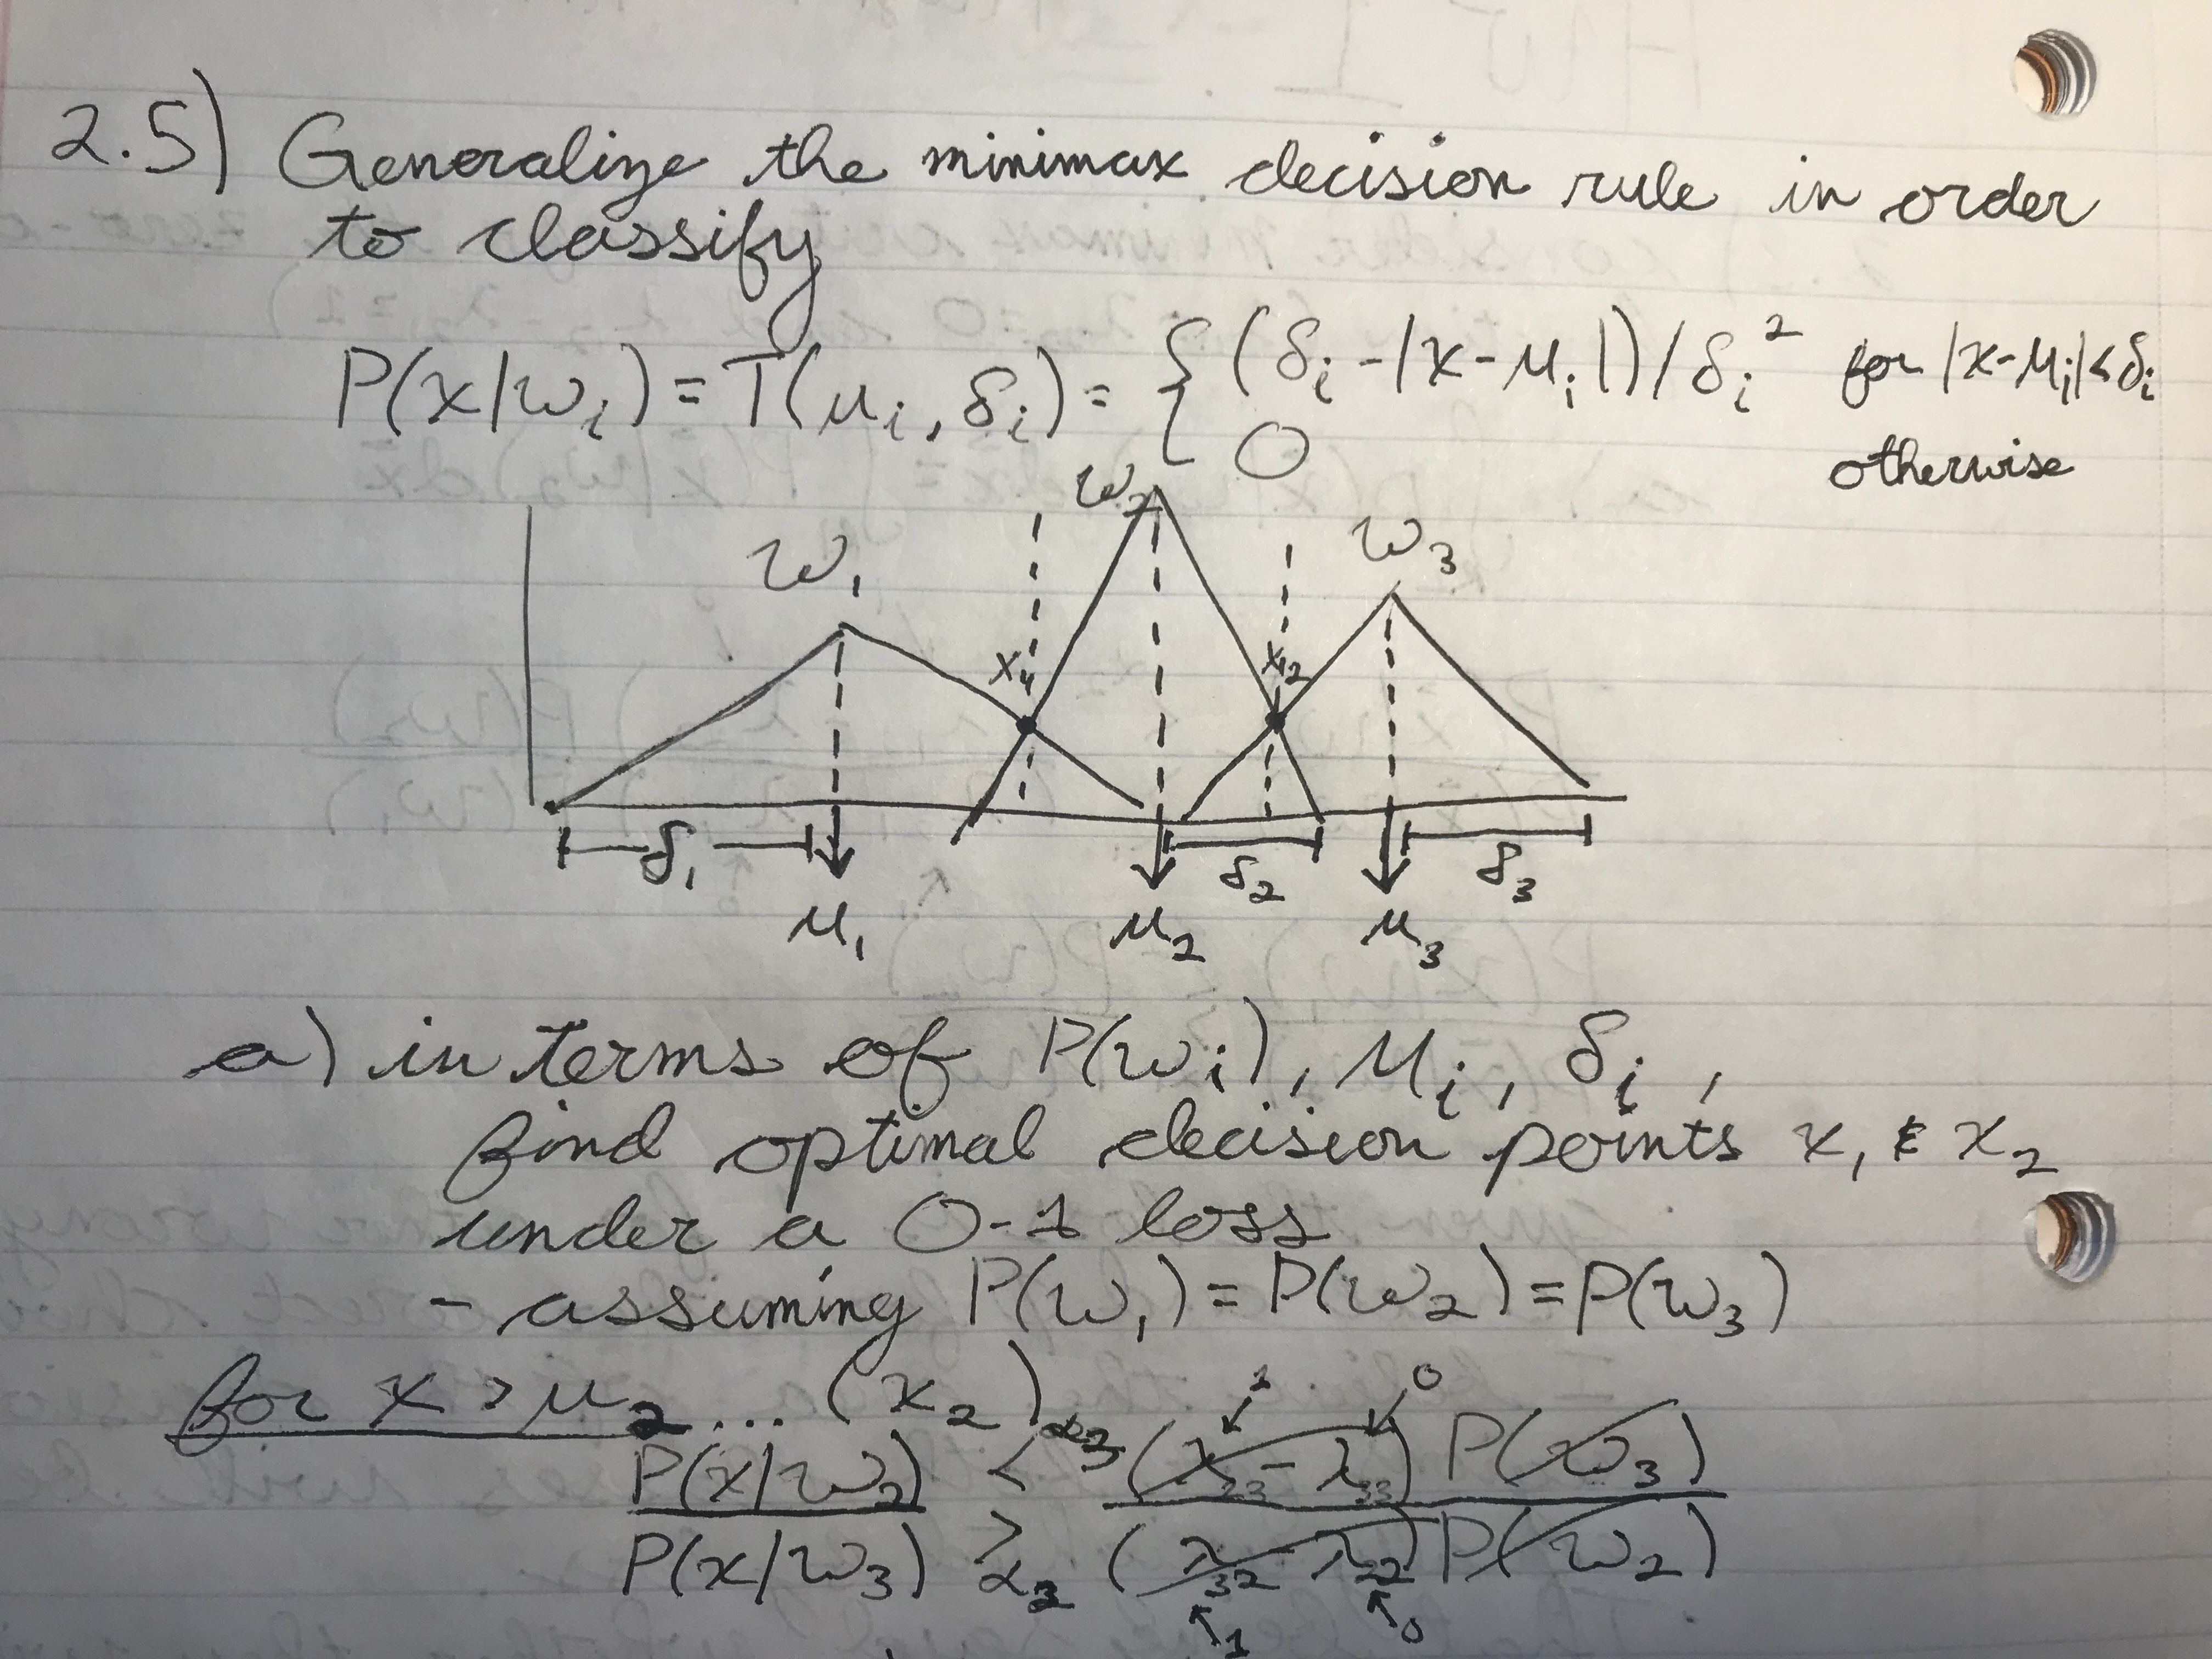 2.5) Generalize the minimax decision rule in order
to classify
P(x|ω₁) = T(μᵢ, δᵢ) = { (δᵢ - |x - μᵢ|)/δᵢ² for |x-μᵢ|<δᵢ
0 otherwise
ω₁ ω₂ ω₃
x₁ x₂
δ₁ δ₂ δ₃
μ₁ μ₂ μ₃
a) in terms of P(ωᵢ), μᵢ, δᵢ,
find optimal decision points x₁ & x₂
under a 0-1 loss
- assuming P(ω₁) = P(ω₂) = P(ω₃)
for x > μ₂ ... (x₂)
1 0
P(x|ω₂) < α₃ (λ₃₂ - λ₃₃) P(ω₃)
P(x|ω₃) > α₂ (λ₃₂ - λ₂₂) P(ω₂)
1 0